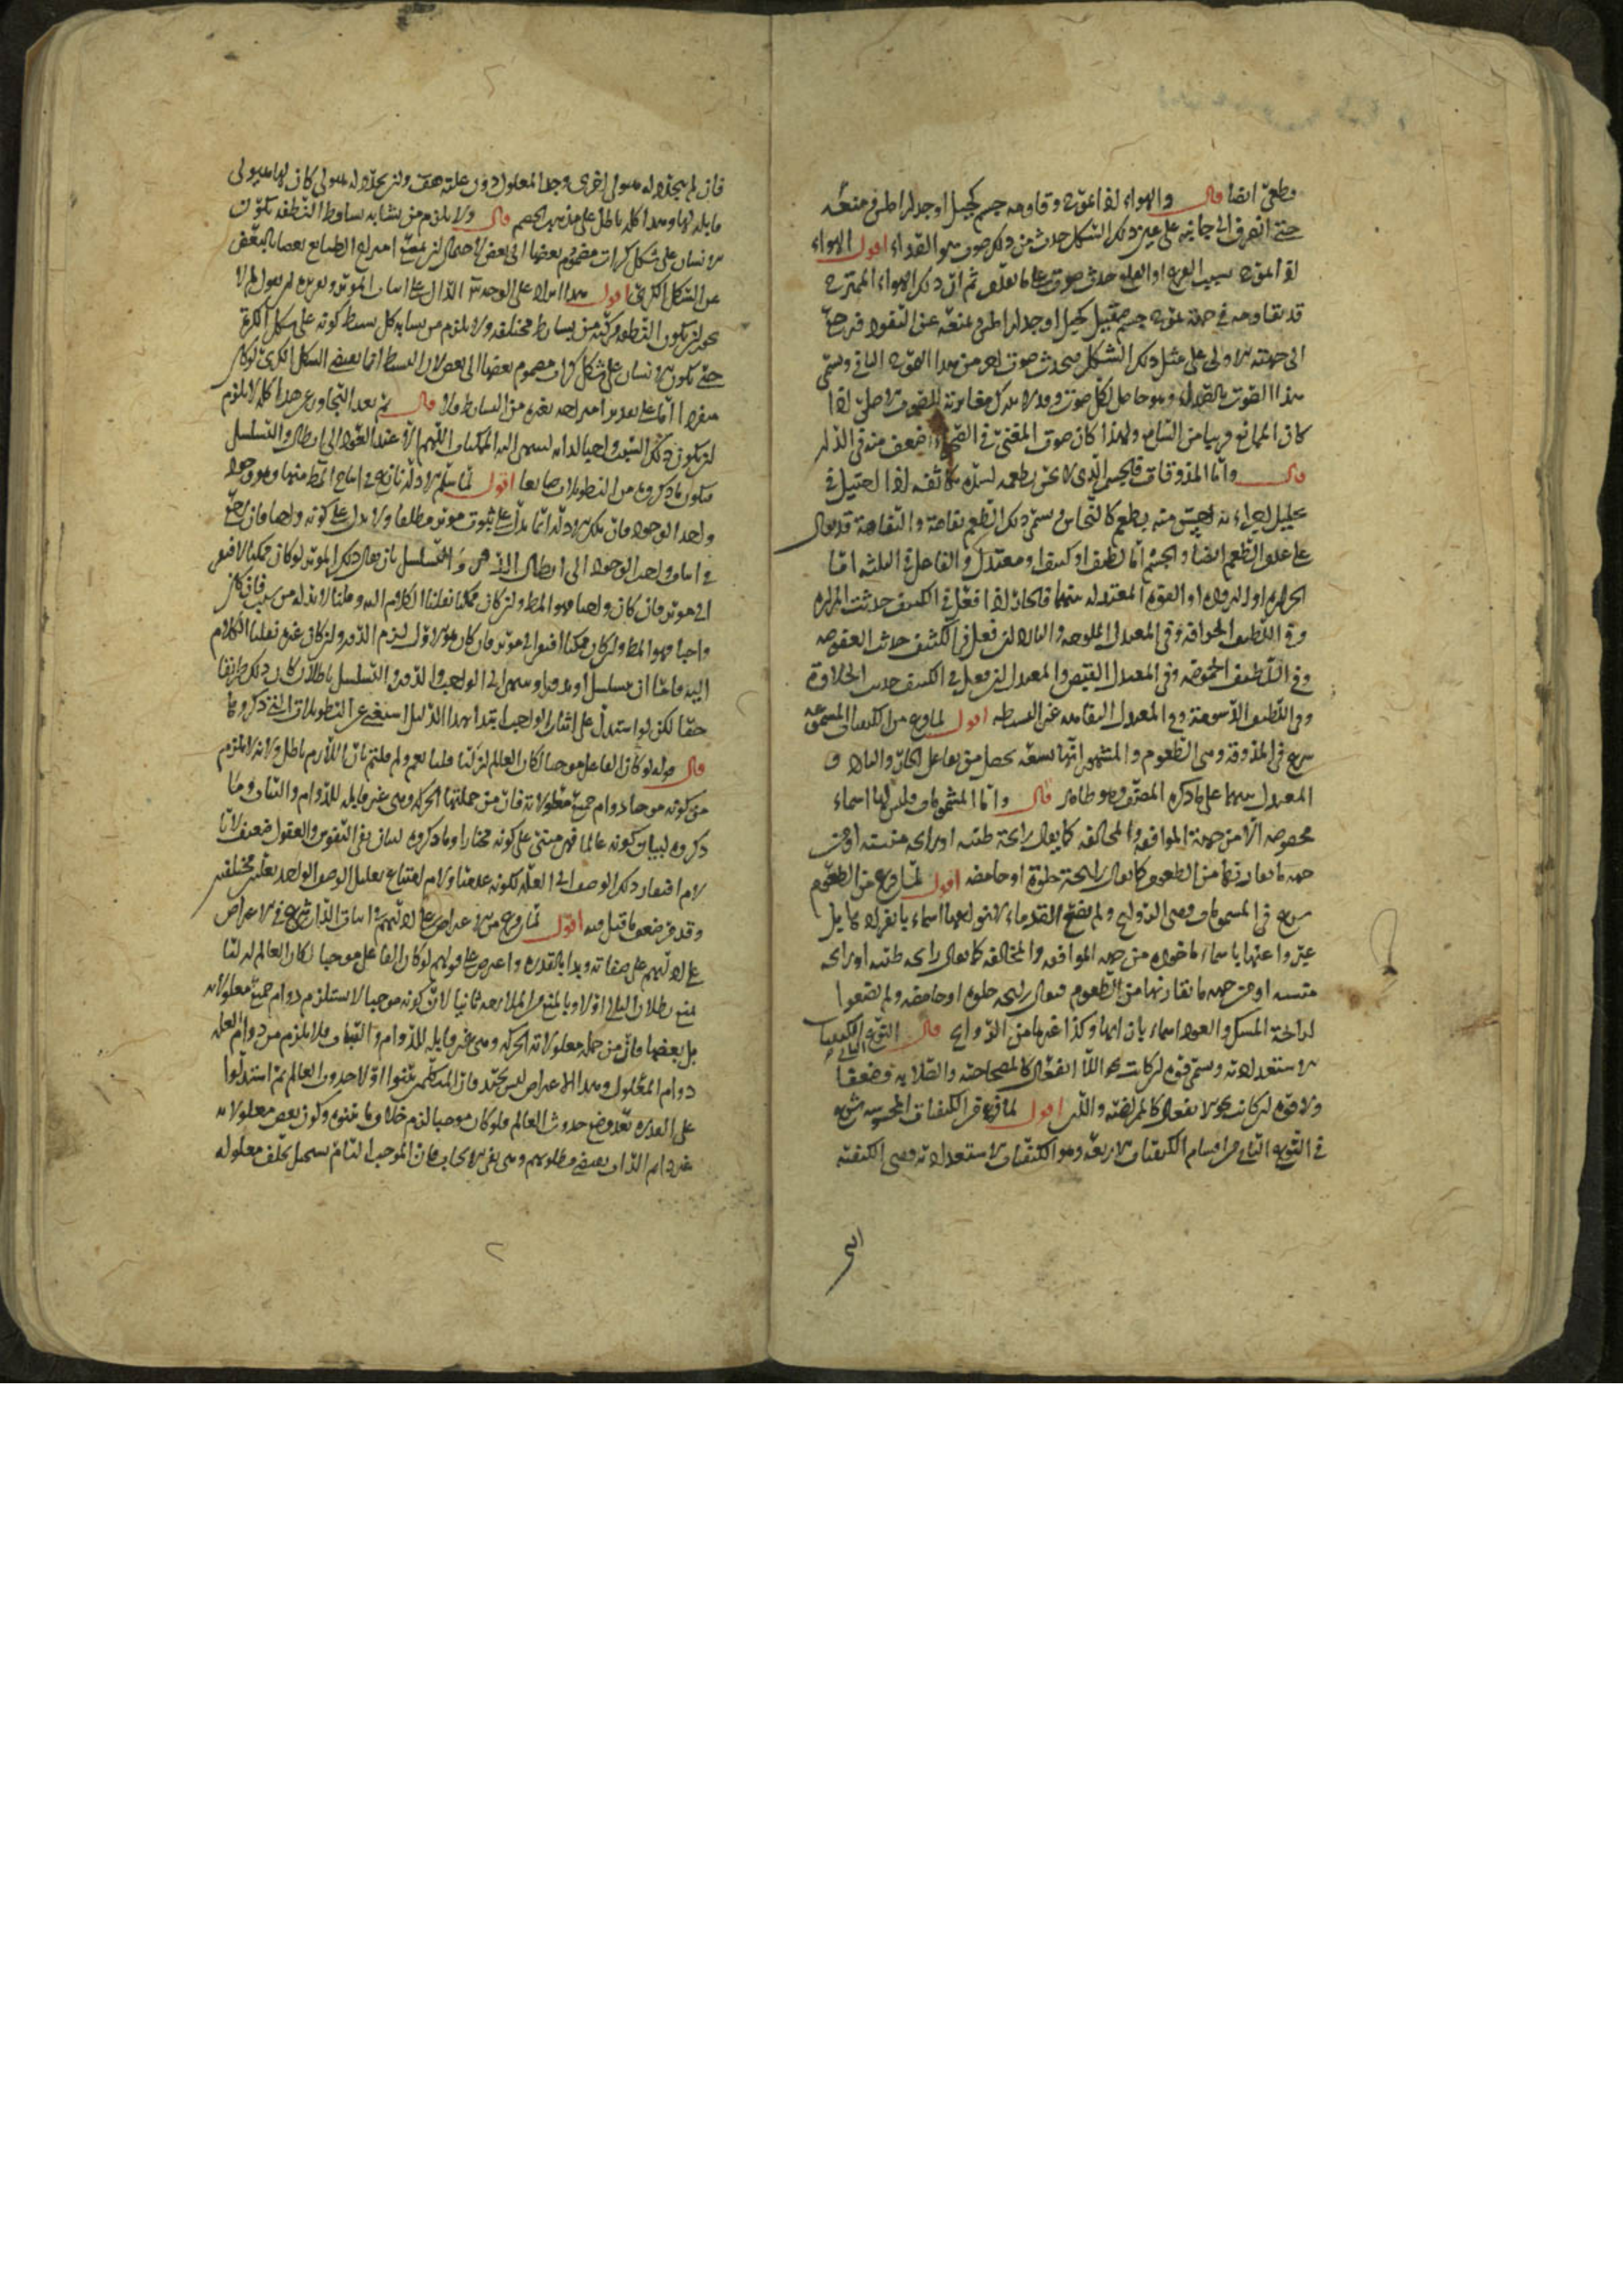 وطعن ايضا قال والهواء اذا تموج وقاومه جسم كجبل او جدار املس فمنعه
حتى انصرف الى جانبه على عين ذلك الشكل حدث من ذلك صوت هو الصداء اقول الهواء
اذا تموج بسبب القرع او القلع حدث صوت على ما تقدم ثم ان ذلك الهواء المتموج
قد يقاومه في جهة تموجه جسم صقيل كجبل او جدار املس فيمنعه عن النفوذ فيرجع
الى جهته الاولى على مثل ذلك الشكل فيحدث صوت اخر من هذا التموج الثاني ويسمى
هذا الصوت بالصداء وهو حاصل لكل صوت وقد لا يدرك مغايرته للصوت الاصلي اذا
كان المانع قريبا من السامع ولهذا كان صوت المغني في الصحراء اضعف منه في الدار
قال واما المذوقات فالجسم الذي لا يحس بطعمه لشدة تكاثفه اذا احتيل في
تحليل اجزائه احس منه بطعم كالنحاس وسمى ذلك الطعم تفاهة والتفاهة قد يقال
على عدم الطعم ايضا والجسم اما لطيف او كثيف او معتدل والفاعل في الثلثة اما
الحرارة او البرودة او القوة المعتدلة بينهما فالحار اذا فعل في الكثيف حدثت المرارة
وفي اللطيف الحرافة وفي المعتدل الملوحة والبارد ان فعل في الكثيف حدث العفوصة
وفي اللطيف الحموضة وفي المعتدل القبض والمعتدل ان فعل في الكثيف حدث الحلاوة
وفي اللطيف الدسومة وفي المعتدل التفاهة غير البسيطة اقول لما فرغ من الكيفيات المسموعة
شرع في المذوقة وهي الطعوم والمشهور انها تسعة تحصل من تفاعل الحار والبارد و
المعتدل بينهما على ما ذكره المصنف وهو ظاهر قال واما المشمومات فليس لها اسماء
مخصوصة الا من جهة الموافقة والمخالفة كما يقال رائحة طيبة او رائحة منتنة او من
جهة ما يقارنها من الطعوم كما يقال رائحة حلوة او حامضة اقول لما فرغ من الطعوم
شرع في المشمومات وهي الروائح ولم يضع القدماء لانواعها اسماء بانفرادها بل
عبروا عنها باسماء ماخوذة من جهة الموافقة والمخالفة كما يقال رائحة طيبة او رائحة
منتنة او من جهة ما يقارنها من الطعوم فيقال رائحة حلوة او حامضة ولم يضعوا
لرائحة المسك والعود اسماء بازائها وكذا غيرها من الروائح قال النوع الثاني الكيفيات
الاستعدادية وتسمى قوة ان كانت نحو اللا انفعال كالمصحاحية والصلابة وضعفا
ولا قوة ان كانت نحو الانفعال كالممراضية واللين اقول لما فرغ من الكيفيات المحسوسة شرع
في النوع الثاني من اقسام الكيفيات الاربعة وهو الكيفيات الاستعدادية وهي الكيفية
التي
فان لم يجز له هيولى اخرى وجد المعلول دون علته هف وان يجز له هيولى كان لها هيولى
قابلة لها وهذا كله باطل على مذهب الخصم قال ولا يلزم من تشابه بسائط النطفة تكون
الانسان على شكل كرات مضموم بعضها الى بعض لاحتمال ان يمنع امتزاج الطبائع بعضها بالبعض
عن الشكل الكري اقول هذا ايراد على الوجه الدال على اثبات المؤثر وتقريره ان يقول لم لا
يجوز ان يكون النطفة مركبة من بسائط مختلفة ولا يلزم من تشابه كل بسيط كونه على شكل الكرة
حتى يكون الانسان على شكل كرات مضموم بعضها الى بعض لان البسيط انما يقتضي الشكل الكري لو كان
منفردا اما على تقدير امتزاجه بغيره من البسائط فلا قال ثم بعد التجاوز عن هذا كله لا يلزم
ان يكون ذلك السبب واجبا لذاته لينتهي اليه الممكنات اللهم الا عند العود الى ابطال الدور والتسلسل
فيكون ما ذكروه من التطويلات ضائعا اقول لما سلم الادلة نازع في انتاج المط منها وهو وجود
واجد الوجود فان تلك الادلة انما تدل على ثبوت مؤثر مطلقا ولا يدل على كونه واجبا فان رجع
في اثبات واجب الوجود الى ابطال الدور والتسلسل بان يقال ذلك المؤثر لو كان ممكنا لافتقر
الى مؤثر فان كان واجبا فهو المط وان كان ممكنا نقلنا الكلام اليه وقلنا لا بد له من سبب فان كان
واجبا فهو المط وان كان ممكنا افتقر الى مؤثر فان كان هو الاول لزم الدور وان كان غيره نقلنا الكلام
اليه فاما ان يتسلسل او يدور او ينتهي الى الواجب والدور والتسلسل باطلان كان ذلك طريقا
حقا لكن لو استدل على اثبات الواجب ابتداء بهذا الدليل استغنى عن التطويلات التي ذكروها
قال قوله لو كان الفاعل موجبا لكان العالم ازليا قلنا نعم ولم قلتم بان اللازم باطل ولانه لا يلزم
من كونه موجبا دوام جميع معلولاته فان من جملتها الحركة وهي غير قابلة للدوام والثبات وما
ذكروه لبيان كونه عالما فهو مبني على كونه مختارا وما ذكروه لبيان نفي النفوس والعقول ضعيف لانا
لا نم افتقار ذلك الوصف الى العلة لكونه عدميا ولا نم امتناع تعليل الوصف الواحد بعلتين مختلفتين
وقد مر ضعف ما قيل فيه اقول لما فرغ من الاعتراض على ادلتهم في اثبات الذات شرع في الاعتراض
على ادلتهم على صفاته وبدا بالقدرة واعترض على قولهم لو كان الفاعل موجبا لكان العالم ازليا
بمنع بطلان التالي اولا وبالمنع من الملازمة ثانيا لان كونه موجبا لا يستلزم دوام جميع معلولاته
بل بعضها فان من جملة معلولاته الحركة وهي غير قابلة للدوام والثبات فلا يلزم من دوام العلة
دوام المعلول وهذا الاعتراض ليس بجيد فان المتكلمين بينوا اولا حدوث العالم ثم استدلوا
على القدرة بعد وضع حدوث العالم فلو كان موجبا لزم خلاف ما بينوه وكون بعض معلولاته
غير دائم الذات يقتضي مطلوبهم وهي نفي الايجاب فان الموجب التام يستحيل تخلف معلوله